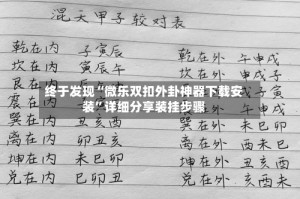 混天甲子较对表
乾在内 子寅辰 乾在外 午申戌
坎在内 寅辰午 坎在外 申戌子
艮在内
终于发现“微乐双扣外卦神器下载安
装”详细分享装挂步骤
震在内
巽在内 丑亥酉 巽在外 未巳卯
离在内 卯丑亥 离在外 酉未巳
坤在内 未巳卯 坤在外 丑亥酉
兑在内 巳卯丑 兑在外 亥酉未